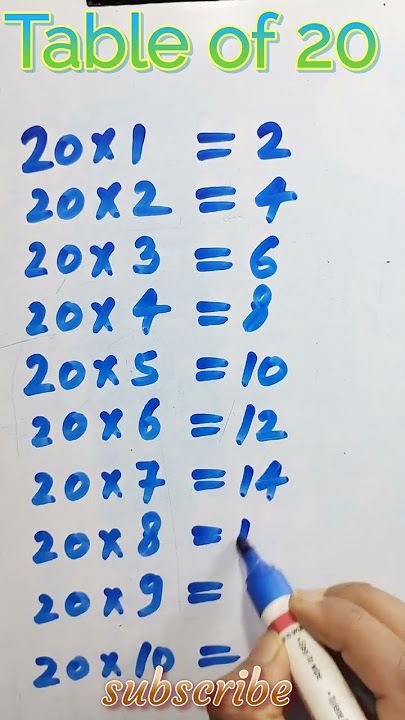 Table of 20
20 x 1 = 2
20 x 2 = 4
20 x 3 = 6
20 x 4 = 8
20 x 5 = 10
20 x 6 = 12
20 x 7 = 14
20 x 8 = 1
20 x 9 =
20 x 10 =
subscribe